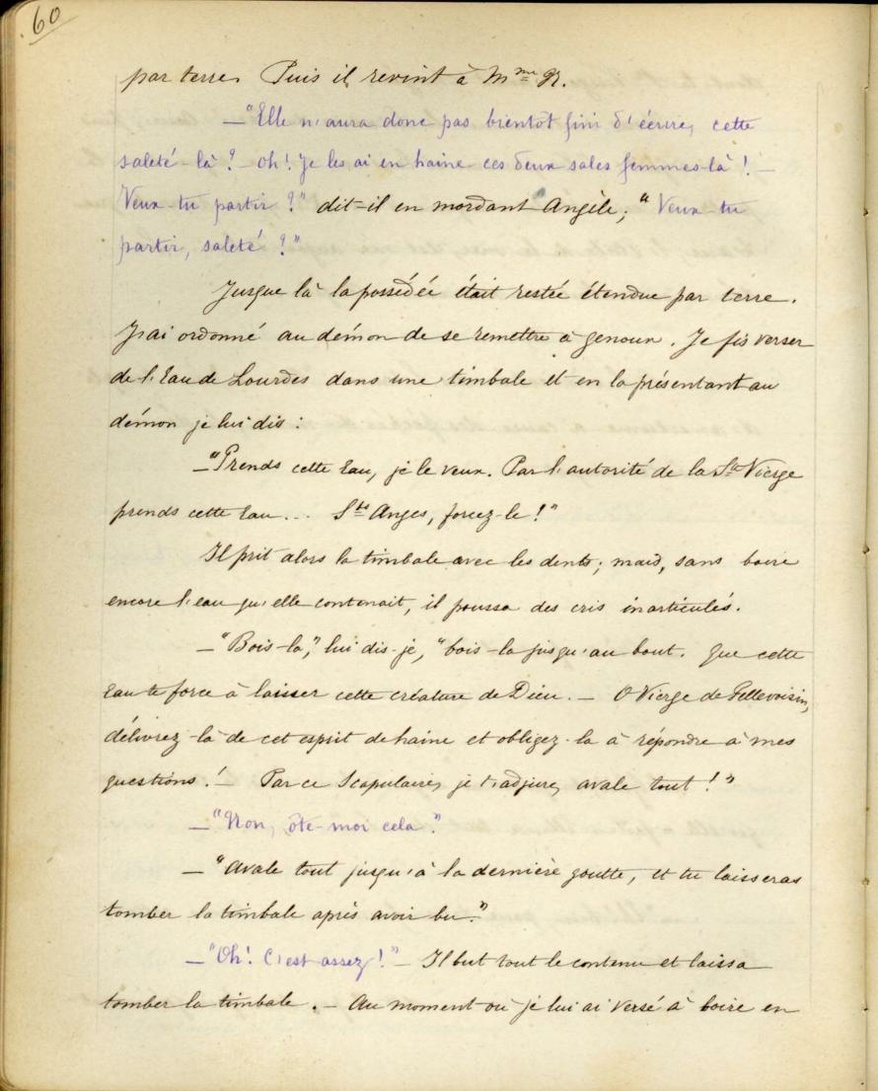 60
par terre. Puis il revint à Mme R.
— "Elle n'aura donc pas bientôt fini d'écrire, cette
saleté-là ? — Oh ! Je les ai en haine ces deux sales femmes-là ! —
Veux-tu partir ?" dit-il en mordant Angèle ; "Veux-tu
partir, saleté ?"
Jusque là la possédée était restée étendue par terre.
J'ai ordonné au démon de se remettre à genoux. Je fis verser
de l'Eau de Lourdes dans une timbale et en la présentant au
démon je lui dis :
— "Prends cette Eau, je le veux. Par l'autorité de la Ste Vierge
prends cette Eau... Sts Anges, forcez-le !"
Il prit alors la timbale avec les dents ; mais, sans boire
encore l'eau qu'elle contenait, il poussa des cris inarticulés.
— "Bois-la," lui dis-je, "bois-la jusqu'au bout. Que cette
Eau te force à laisser cette créature de Dieu. — O Vierge de Pellevoisin,
délivrez-la de cet esprit de haine et obligez-la à répondre à mes
questions ! — Par ce Scapulaire, je t'adjure, avale tout !"
— "Non, ôte-moi cela."
— "Avale tout jusqu'à la dernière goutte, et tu laisseras
tomber la timbale après avoir bu."
— "Oh ! C'est assez !" — Il but tout le contenu et laissa
tomber la timbale. — Au moment où je lui ai versé à boire en